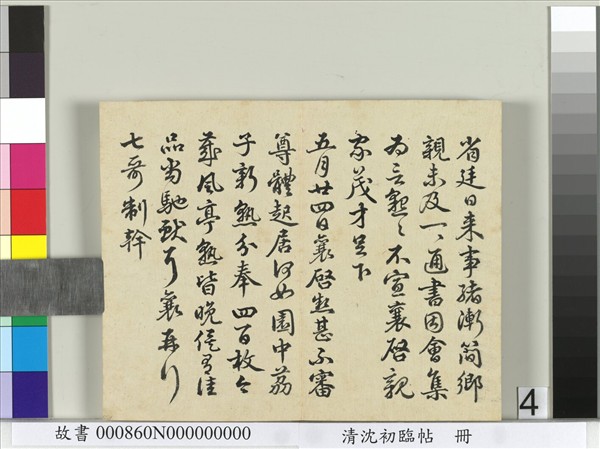 省廷日来事緒漸簡鄉
親未及一一通書因會集
為言懇々不宣襄啓親
家茂才足下
五月廿四日襄啓暑甚不審
尊體起居何如園中荔
子新熟分奉四百枚今
歲風亭熟皆晚俟有佳
品當馳獻耳襄再行
七哥制幹
4
故書 000860N000000000 清沈初臨帖 冊